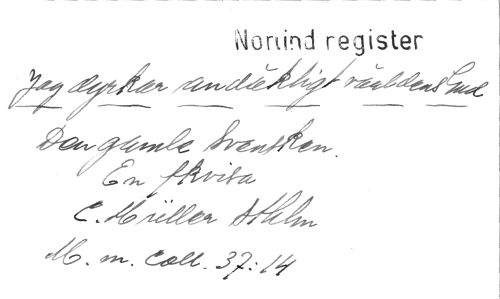 Norlind register
Jag dyrkar andäktligt världens Gud
Den gamle Svensken.
En fkvisa
C. Müller Sthlm
M. m. Coll. 37:14